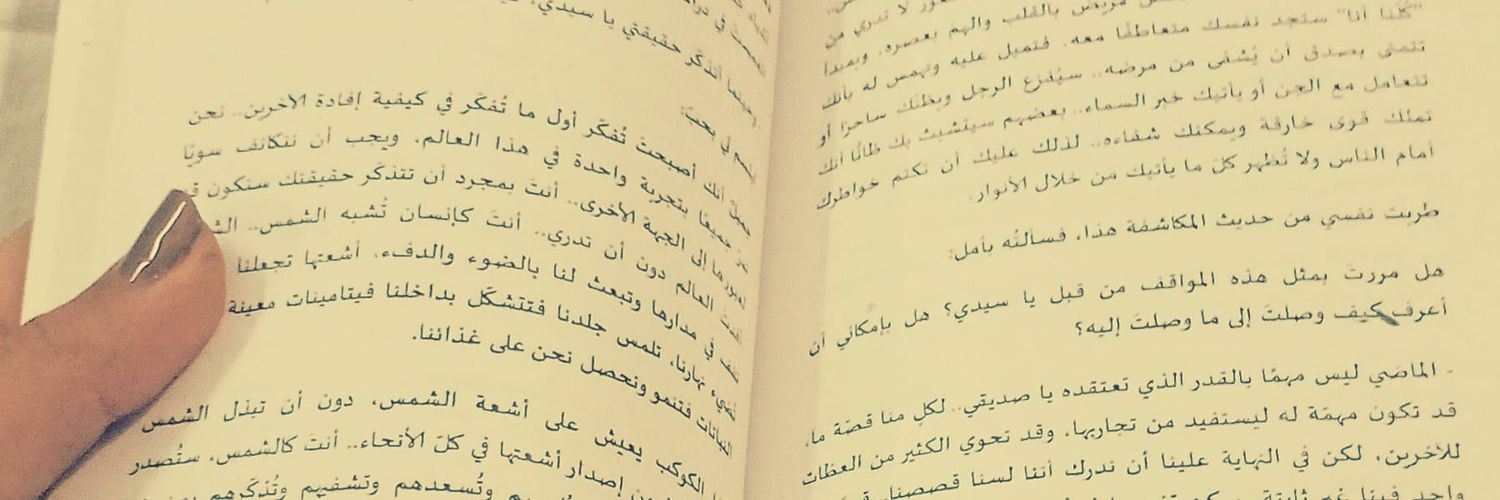 "كُلّنا أنا" ستجد نفسك متعاطفًا معه. فتميل عليه وتهمس له بأنك
تتمنى بصدق أن يُشفى من مرضه.. سيُفزع الرجل ويظنك ساحرًا أو
تتعامل مع الجن أو يأتيك خبر السماء.. بعضهم سيتشبث بك ظانًا أنك
تملك قوى خارقة ويمكنك شفاءه.. لذلك عليك أن تكتم خواطرك
أمام الناس ولا تُظهر كلّ ما يأتيك من خلال الأنوار.
طربت نفسي من حديث المكاشفة هذا، فسألتُه بأمل:
هل مررتَ بمثل هذه المواقف من قبل يا سيدي؟ هل بإمكاني أن
أعرف كيف وصلتَ إلى ما وصلتَ إليه؟
- الماضي ليس مهمًا بالقدر الذي تعتقده يا صديقي.. لكلٍ منا قصّة ما،
قد تكون مهمّة له ليستفيد من تجاربها، وقد تحوي الكثير من العظات
للآخرين، لكن في النهاية علينا أن ندرك أننا لسنا قصصنا،
أتذكّر حقيقتي يا سيدي،
في بحب:
أنك أصبحتَ تُفكّر أول ما تُفكّر في كيفية إفادة الآخرين.. نحن
جميعًا بتجربة واحدة في هذا العالم، ويجب أن نتكاتف سويًا
إلى الجهة الأخرى.. أنتَ بمجرد أن تتذكّر حقيقتك ستكون
العالم دون أن تدري.. أنتَ كإنسان تُشبه الشمس..
في مدارها وتبعث لنا بالضوء والدفء، أشعتها تجعلنا
نهارنا، تلمس جلدنا فتتشكّل بداخلنا فيتامينات معينة
النباتات فتنمو ونحصل نحن على غذائنا.
الكوكب يعيش على أشعة الشمس، دون أن تبذل الشمس
إصدار أشعتها في كلّ الأنحاء.. أنتَ كالشمس، ستُصدر
وتُسعدهم وتشفيهم وتُذكّرهم